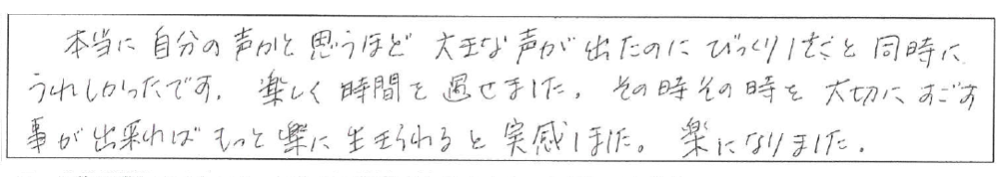 本当に自分の声かと思うほど大きな声が出たのにびっくりしたと同時に
うれしかったです。楽しく時間を過せました。その時その時を大切にすごす
事が出来ればもっと楽に生きられると実感しました。楽になりました。